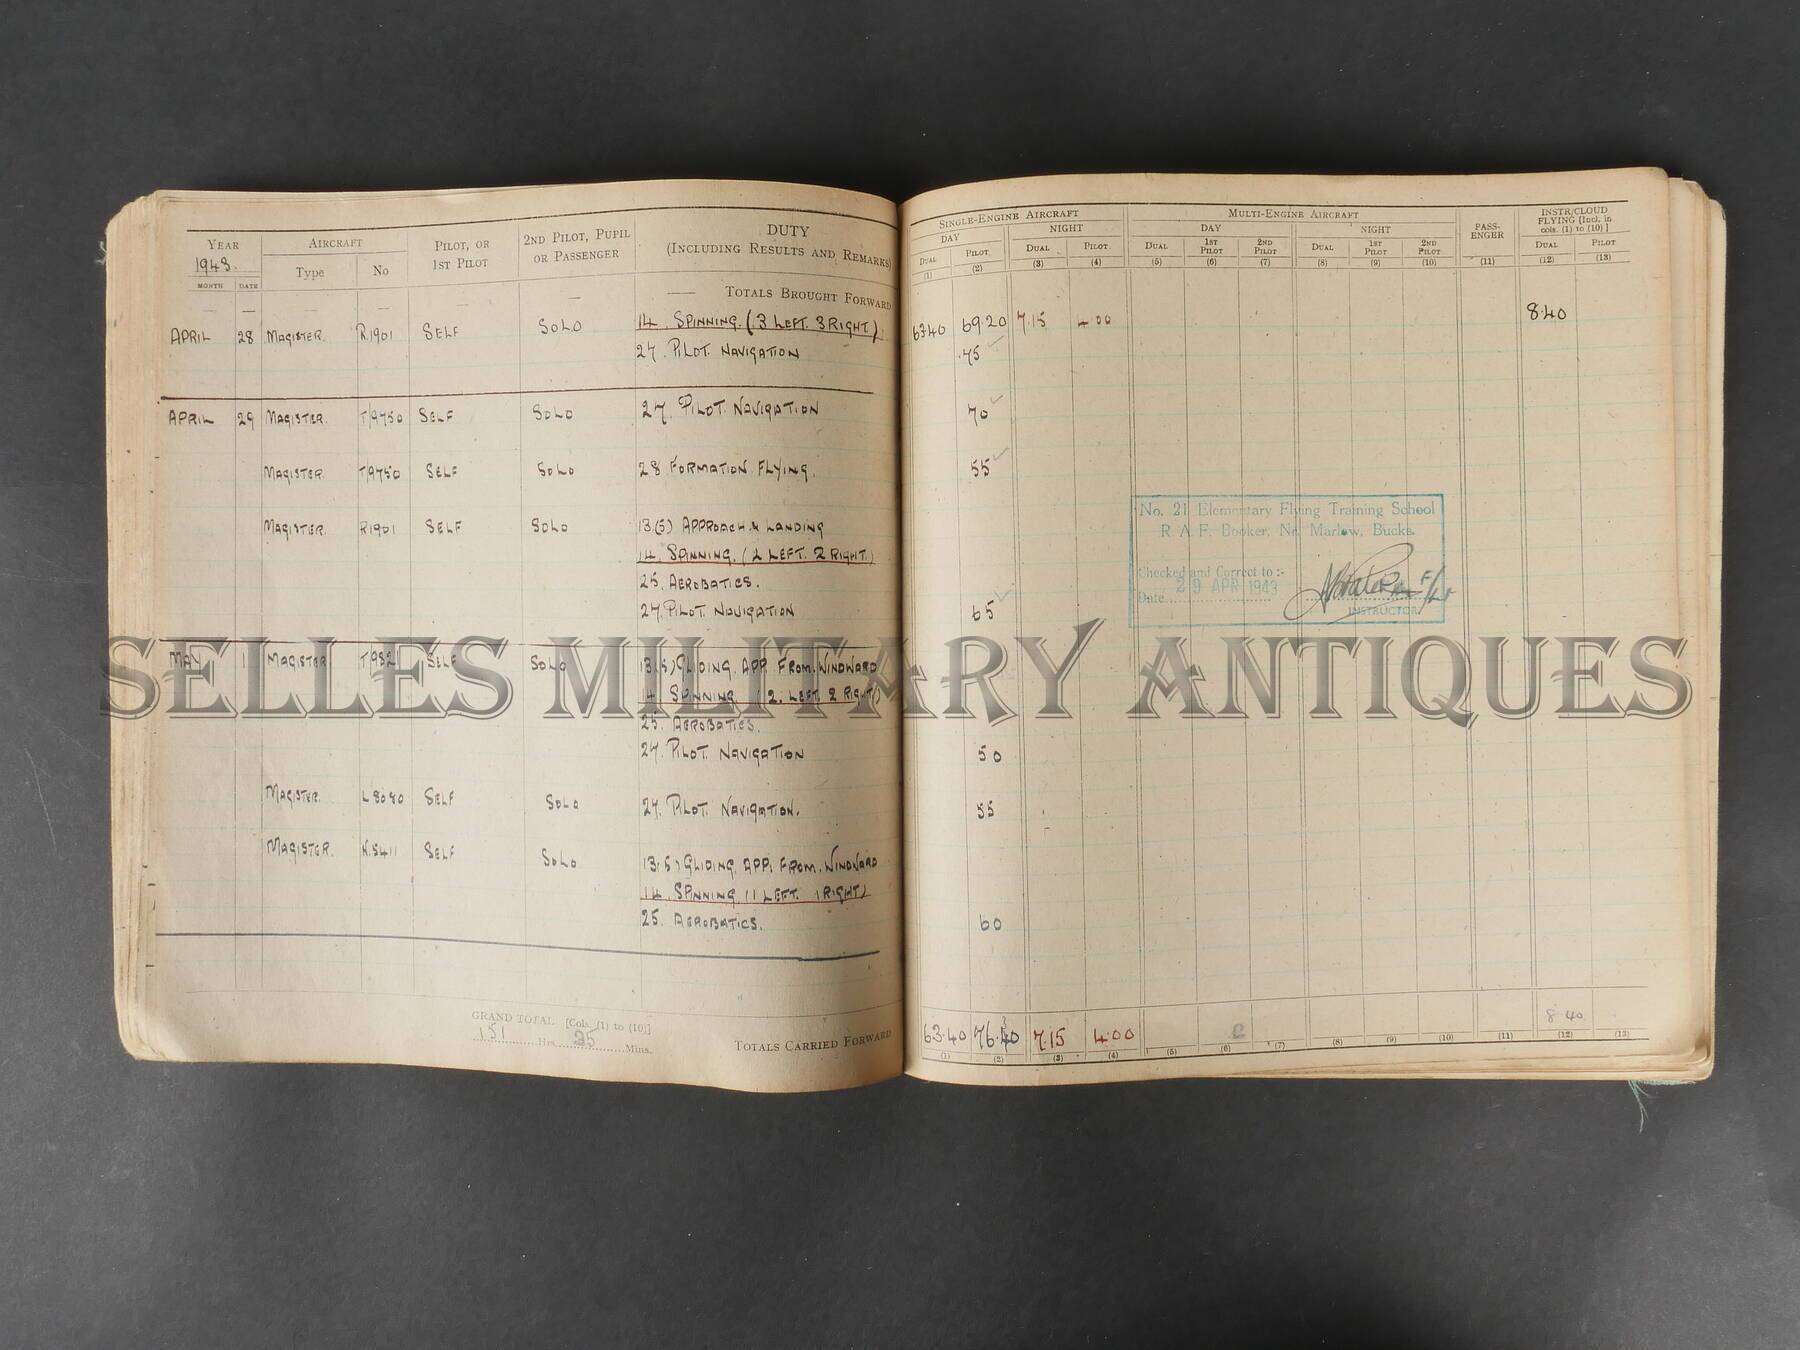 YEAR AIRCRAFT PILOT, OR 1ST PILOT 2ND PILOT, PUPIL OR PASSENGER DUTY (INCLUDING RESULTS AND REMARKS)
1943. Type No
MONTH DATE
— — — — — — — TOTALS BROUGHT FORWARD
APRIL 28 MAGISTER. R.1901 SELF SOLO 14. SPINNING. (3 LEFT. 3 RIGHT)
27. PILOT. NAVIGATION
APRIL 29 MAGISTER. T/9750 SELF SOLO 27. PILOT. NAVIGATION
MAGISTER. T/9750 SELF SOLO 28 FORMATION. FLYING.
MAGISTER. R1901 SELF SOLO 13.(5) APPROACH & LANDING
14. SPINNING. (2 LEFT. 2 RIGHT.)
25. AEROBATICS.
27. PILOT NAVIGATION
MAY 1 MAGISTER SELF SOLO 13.(5) GLIDING. APP. FROM. WINDWARD
14. SPINNING (2. LEFT. 2 RIGHT)
25. AEROBATICS.
27. PILOT. NAVIGATION
MAGISTER. L8080 SELF SOLO 27. PILOT. NAVIGATION.
MAGISTER. N.5411 SELF SOLO 13(5) GLIDING. APP. FROM. WINDWARD
14. SPINNING (1 LEFT. 1 RIGHT)
25. AEROBATICS.
GRAND TOTAL [Cols. (1) to (10)]
151 Hrs. 35 Mins. TOTALS CARRIED FORWARD
SINGLE-ENGINE AIRCRAFT MULTI-ENGINE AIRCRAFT PASSENGER INSTR/CLOUD FLYING [Incl. in cols. (1) to (10)]
DAY NIGHT DAY NIGHT
DUAL PILOT DUAL PILOT DUAL 1ST PILOT 2ND PILOT DUAL 1ST PILOT 2ND PILOT DUAL PILOT
(1) (2) (3) (4) (5) (6) (7) (8) (9) (10) (11) (12) (13)
63.40 69.20 7.15 4.00 8.40
75
70
55
No. 21 Elementary Flying Training School
R. A. F. Booker, Nr. Marlow, Bucks.
Checked and Correct to :-
Date 29 APR 1943
INSTRUCTOR
65
50
55
60
63.40 76.40 7.15 4.00 8.40
(1) (2) (3) (4) (5) (6) (7) (8) (9) (10) (11) (12) (13)
SELLES MILITARY ANTIQUES